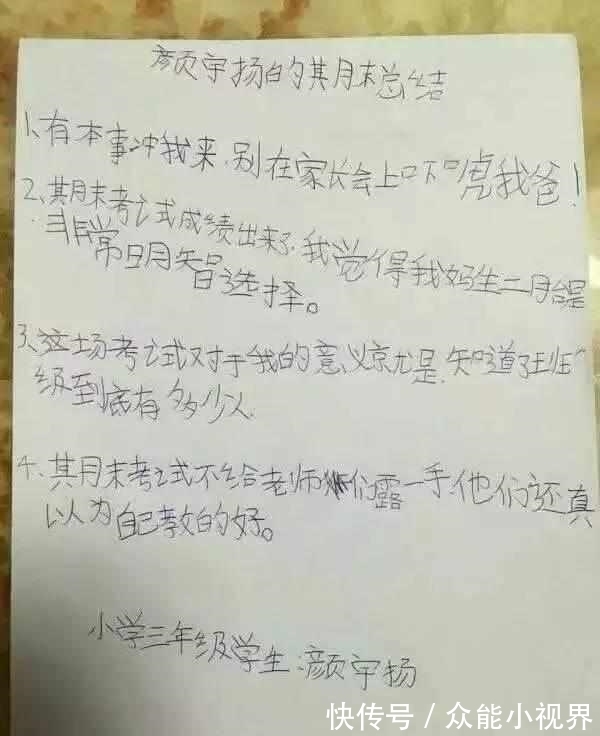 颜宇扬的期末总结
1、有本事冲我来,别在家长会上吓唬我爸!
2、期末考试成绩出来了,我觉得我妈生二胎是
非常明智选择。
3、这场考试对于我的意义就是,知道了班
级到底有多少人
4、期末考试不给老师们露一手,他们还真
以为自己教的好。
小学三年级学生:颜宇扬
快传号/众能小视界